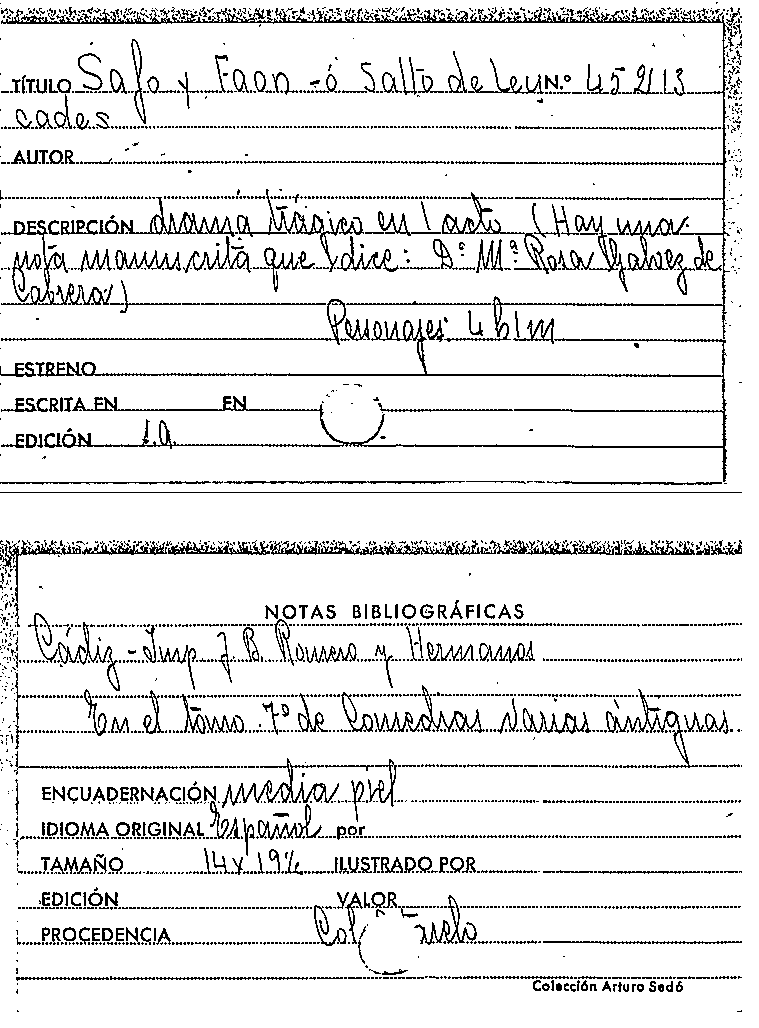 TÍTULO Safo y Faon - ó Salto de Leu N.º 45213
cades
AUTOR
DESCRIPCIÓN drama trágico en 1 acto (Hay una
nota manuscrita que dice: Dª Mª Rosa Galvez de
Cabrera)
Personajes: 4 h 1 m
ESTRENO
ESCRITA EN EN
EDICIÓN s.a.
NOTAS BIBLIOGRÁFICAS
Cádiz - Imp J. B. Romero y Hermanos
En el tomo 7º de Comedias varias ántiguas
ENCUADERNACIÓN media piel
IDIOMA ORIGINAL Español por
TAMAÑO 14 x 19½ ILUSTRADO POR
EDICIÓN VALOR
PROCEDENCIA
Colección Arturo Sedó